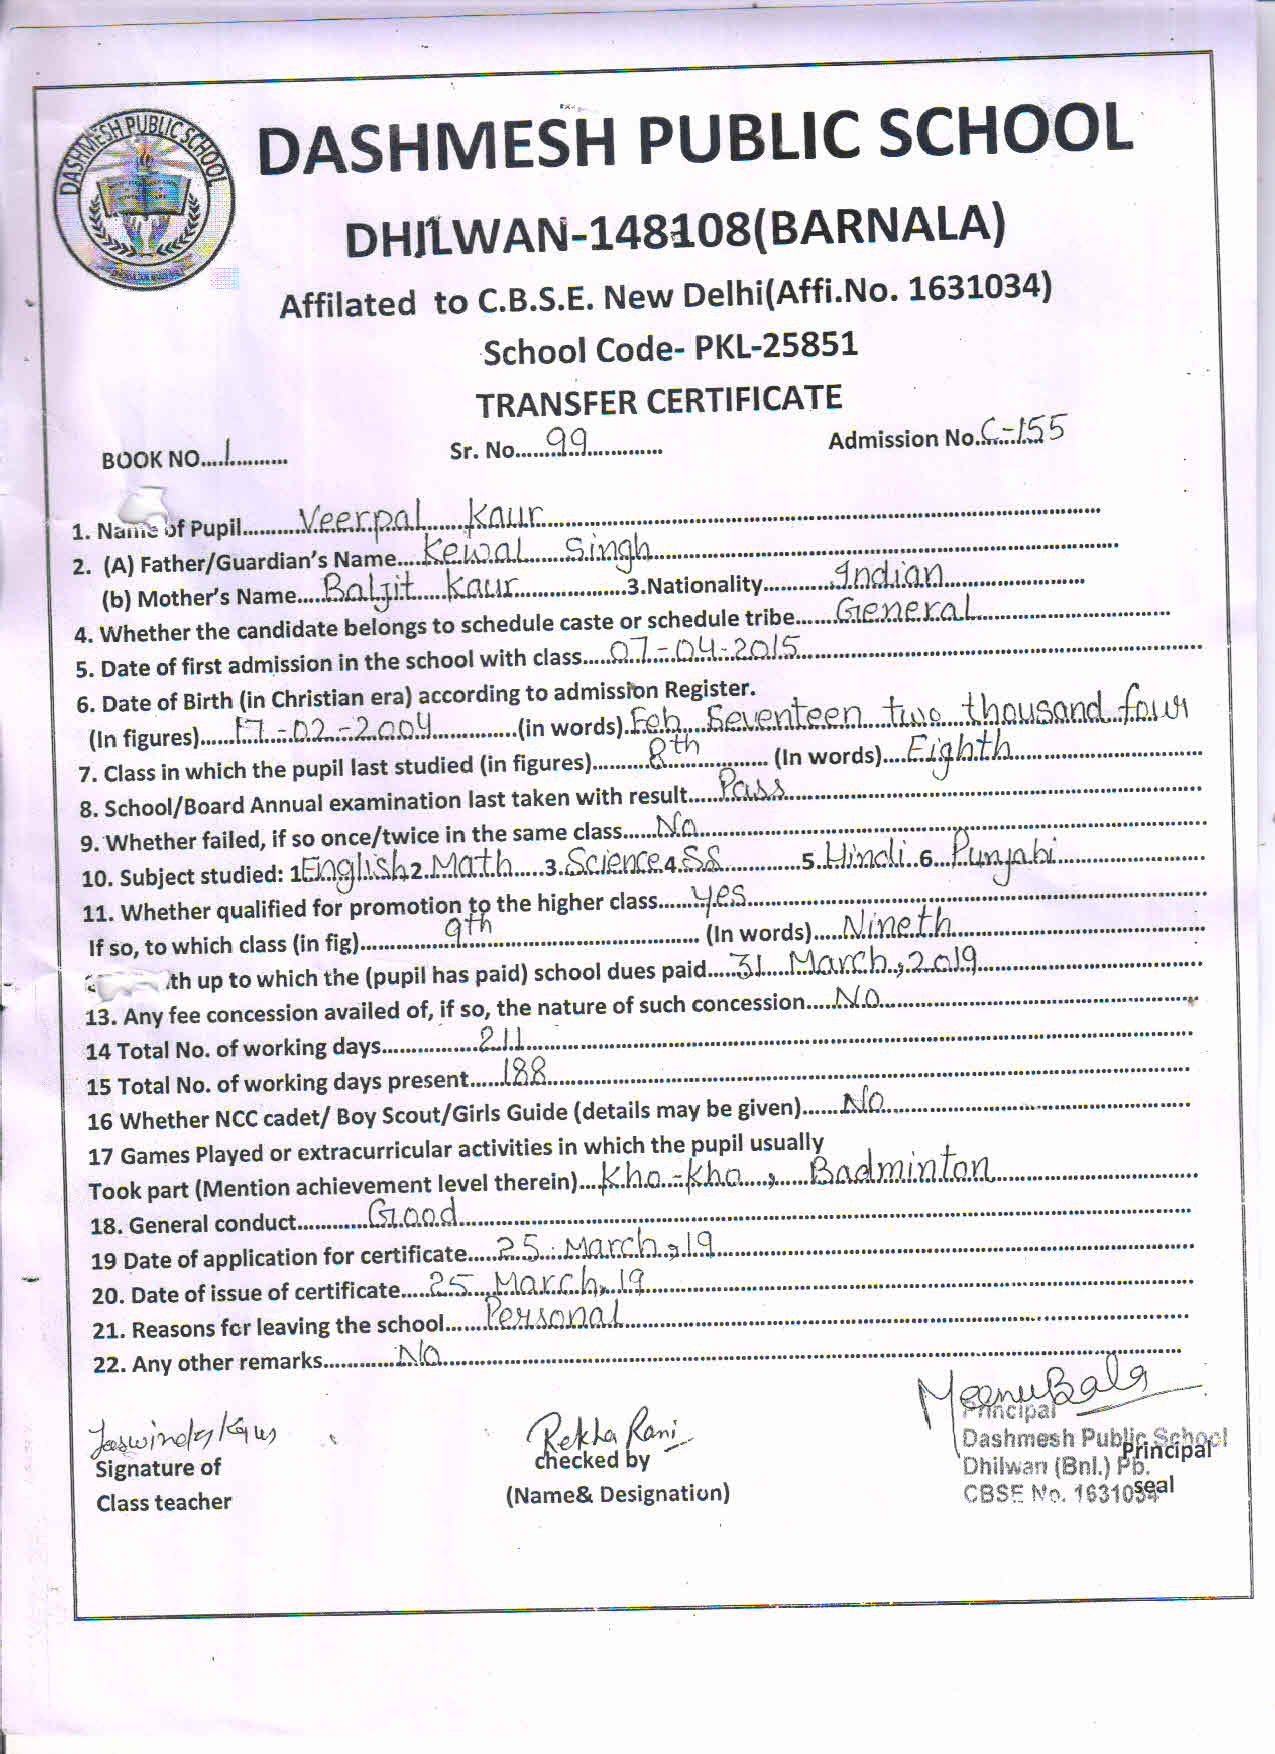 DASHMESH PUBLIC SCHOOL
DASHMESH PUBLIC SCHOOL
DHILWAN-148108(BARNALA)
Affilated to C.B.S.E. New Delhi(Affi.No. 1631034)
School Code- PKL-25851
TRANSFER CERTIFICATE
BOOK NO....1.......... Sr. No......99............. Admission No.C-155
1. Name of Pupil.........Veerpal Kaur
2. (A) Father/Guardian's Name....Kewal Singh
(b) Mother's Name....Baljit Kaur..................3.Nationality...........Indian
4. Whether the candidate belongs to schedule caste or schedule tribe.......General
5. Date of first admission in the school with class.....07-04-2015
6. Date of Birth (in Christian era) according to admission Register.
(In figures)......17-02-2004.............(in words).Feb Seventeen two thousand four
7. Class in which the pupil last studied (in figures).........8th............. (In words)....Eighth
8. School/Board Annual examination last taken with result.....Pass
9. Whether failed, if so once/twice in the same class......No
10. Subject studied: 1English2.Math.....3.Science4.SS............5.Hindi.6...Punjabi
11. Whether qualified for promotion to the higher class......yes
If so, to which class (in fig)...............9th.................................. (In words).....Nineth
th up to which the (pupil has paid) school dues paid.....31 March, 2019
13. Any fee concession availed of, if so, the nature of such concession.....No
14 Total No. of working days................211
15 Total No. of working days present......188
16 Whether NCC cadet/ Boy Scout/Girls Guide (details may be given)......No
17 Games Played or extracurricular activities in which the pupil usually
Took part (Mention achievement level therein)....Kho-Kho, Badminton
18. General conduct............Good
19 Date of application for certificate.....25 March, 19
20. Date of issue of certificate.....25 March, 19
21. Reasons for leaving the school......Personal
22. Any other remarks.............No
Jaswinder Kaur Rekha Rani MeenuBala
Signature of checked by Principal
Class teacher (Name& Designation) seal
Principal
Dashmesh Public School
Dhilwan (Bnl.) Pb.
CBSE No. 1631034